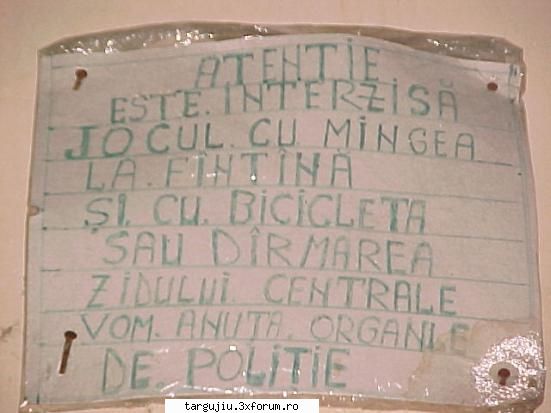 ATENTIE
ESTE. INTERZISĂ
JOCUL. CU. MINGEA
LA. FINTÎNA
ȘI. CU. BICICLETA
SAU DÎRMAREA
ZIDULUI. CENTRALE
VOM. ANUTA. ORGANLE
DE. POLITIE
targujiu.3xforum.ro